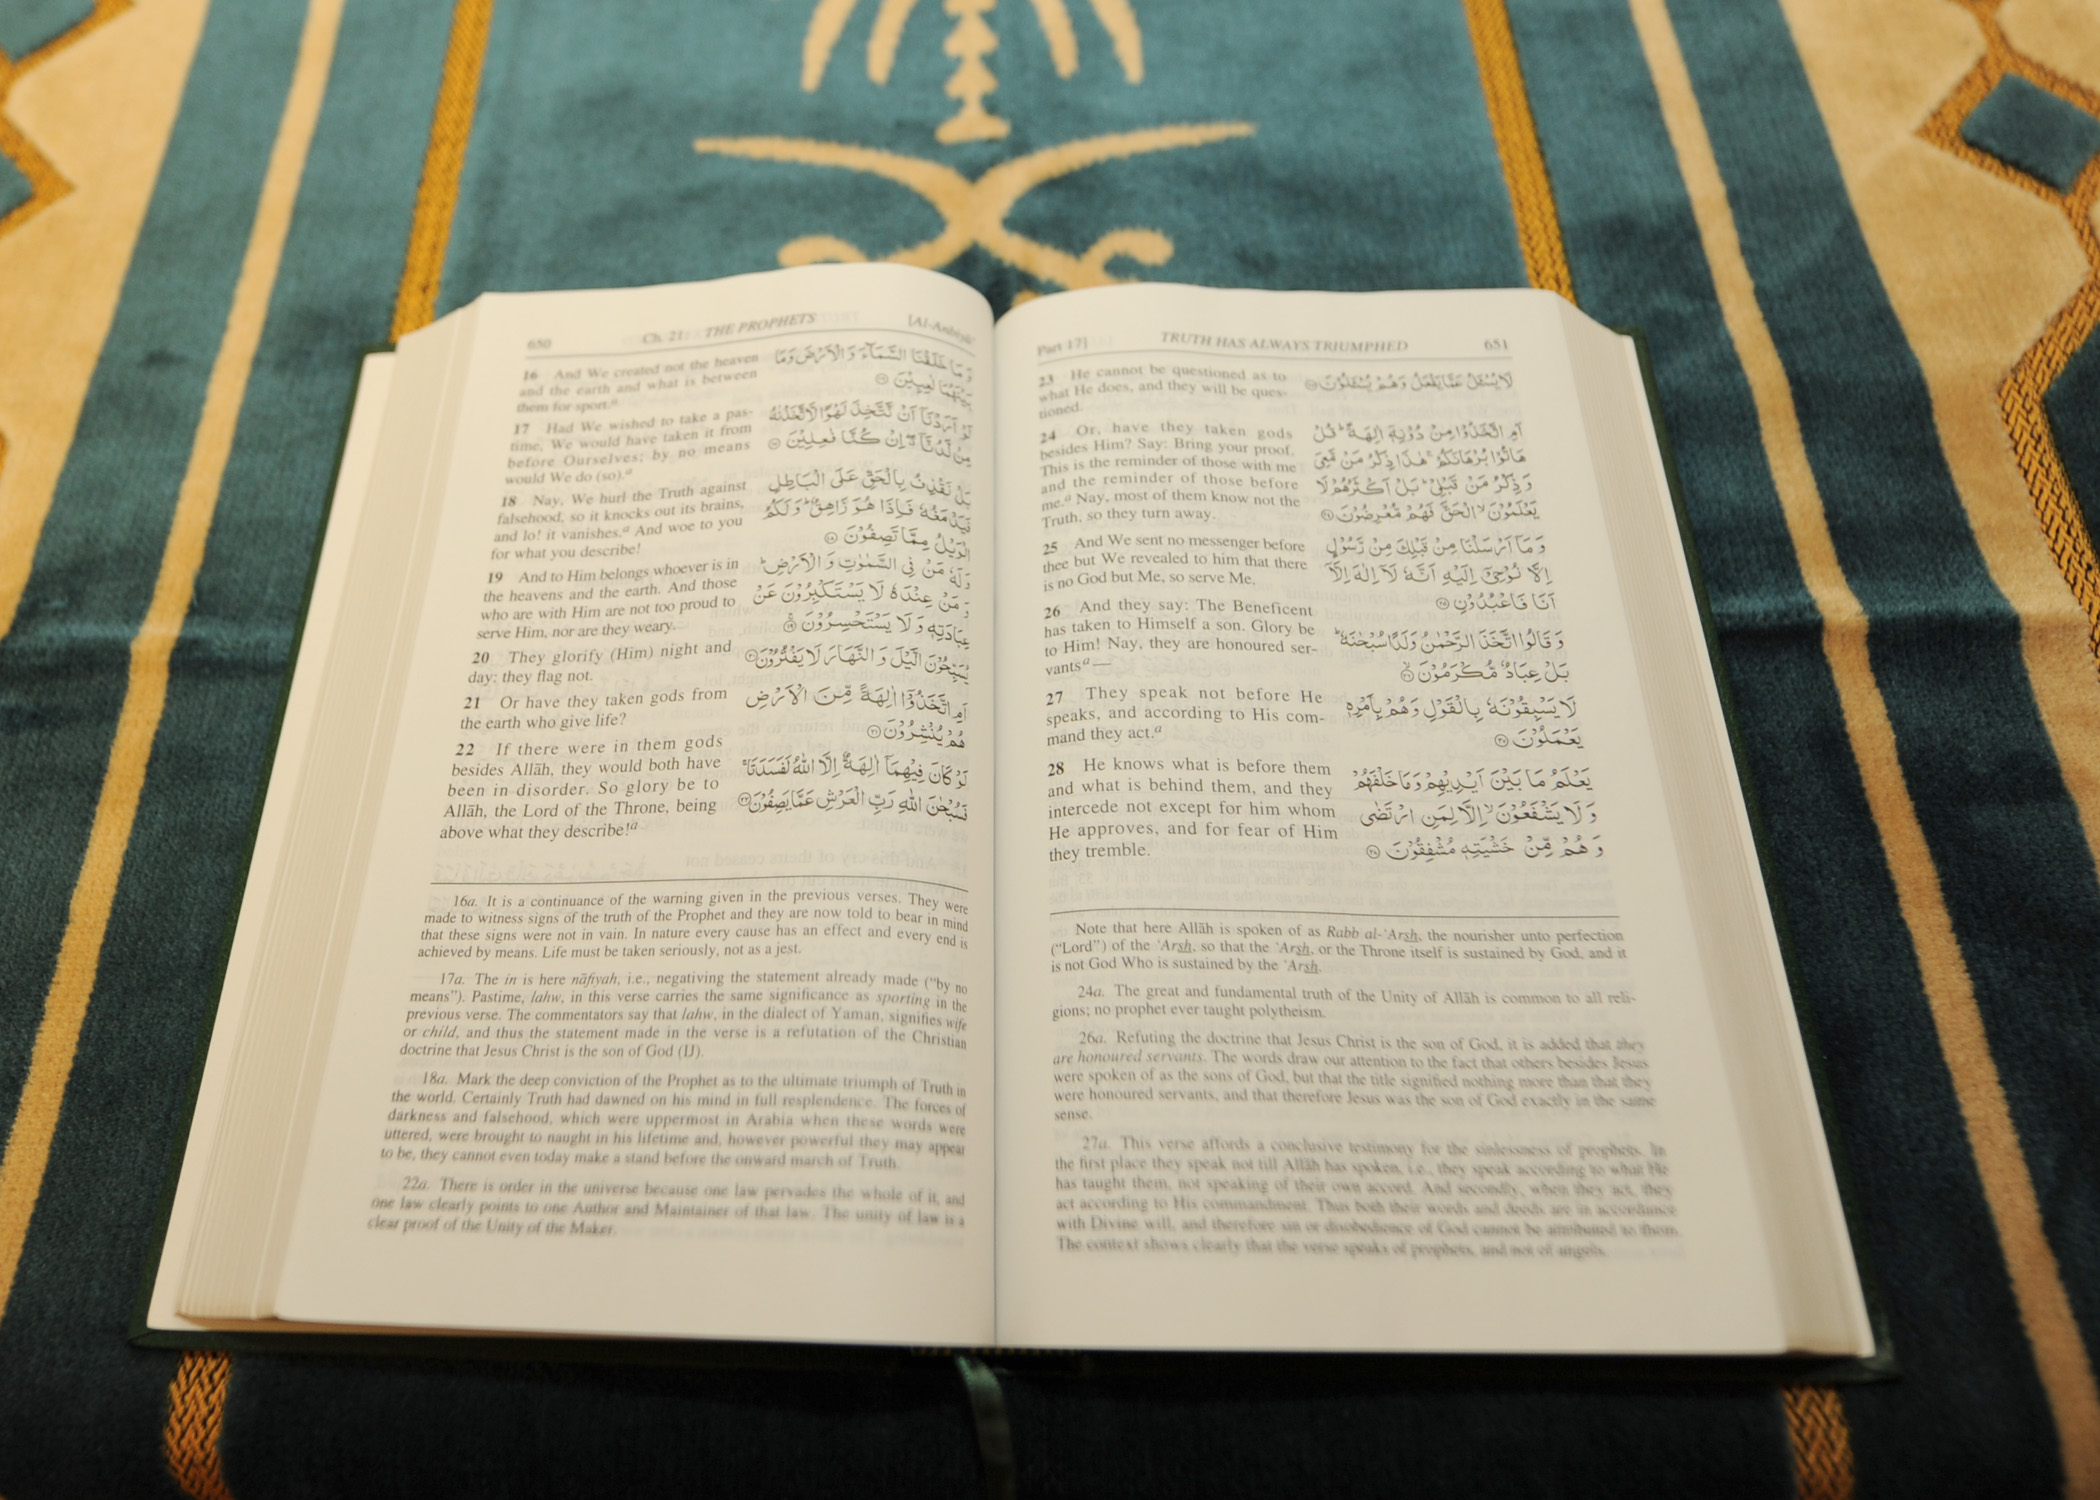 650 Ch. 21: THE PROPHETS [Al-Anbiyā’
16 And We created not the heaven
and the earth and what is between
them for sport.a
17 Had We wished to take a pas-
time, We would have taken it from
before Ourselves; by no means
would We do (so).a
18 Nay, We hurl the Truth against
falsehood, so it knocks out its brains,
and lo! it vanishes.a And woe to you
for what you describe!
19 And to Him belongs whoever is in
the heavens and the earth. And those
who are with Him are not too proud to
serve Him, nor are they weary.
20 They glorify (Him) night and
day: they flag not.
21 Or have they taken gods from
the earth who give life?
22 If there were in them gods
besides Allāh, they would both have
been in disorder. So glory be to
Allāh, the Lord of the Throne, being
above what they describe!a
وَمَا خَلَقْنَا السَّمَآءَ وَ الْاَرْضَ وَمَا
بَيْنَهُمَا لٰعِبِيْنَ ۝۱۶
لَوْ اَرَدْنَآ اَنْ نَّتَّخِذَ لَهْوًا لَّاتَّخَذْنٰهُ
مِنْ لَّدُنَّآ ۖ اِنْ كُنَّا فٰعِلِيْنَ ۝۱۷
بَلْ نَقْذِفُ بِالْحَقِّ عَلَى الْبَاطِلِ
فَيَدْمَغُهٗ فَاِذَا هُوَ زَاهِقٌ ؕ وَلَكُمُ
الْوَيْلُ مِمَّا تَصِفُوْنَ ۝۱۸
وَلَهٗ مَنْ فِى السَّمٰوٰتِ وَ الْاَرْضِ ؕ
وَ مَنْ عِنْدَهٗ لَا يَسْتَكْبِرُوْنَ عَنْ
عِبَادَتِهٖ وَ لَا يَسْتَحْسِرُوْنَ ۝۱۹
يُسَبِّحُوْنَ الَّيْلَ وَ النَّهَارَ لَا يَفْتُرُوْنَ ۝۲۰
اَمِ اتَّخَذُوْٓا اٰلِهَةً مِّنَ الْاَرْضِ
هُمْ يُنْشِرُوْنَ ۝۲۱
لَوْ كَانَ فِيْهِمَآ اٰلِهَةٌ اِلَّا اللّٰهُ لَفَسَدَتَا ۚ
فَسُبْحٰنَ اللّٰهِ رَبِّ الْعَرْشِ عَمَّا يَصِفُوْنَ ۝۲۲
16a. It is a continuance of the warning given in the previous verses. They were
made to witness signs of the truth of the Prophet and they are now told to bear in mind
that these signs were not in vain. In nature every cause has an effect and every end is
achieved by means. Life must be taken seriously, not as a jest.
17a. The in is here nāfiyah, i.e., negativing the statement already made (“by no
means”). Pastime, lahw, in this verse carries the same significance as sporting in the
previous verse. The commentators say that lahw, in the dialect of Yaman, signifies wife
or child, and thus the statement made in the verse is a refutation of the Christian
doctrine that Jesus Christ is the son of God (IJ).
18a. Mark the deep conviction of the Prophet as to the ultimate triumph of Truth in
the world. Certainly Truth had dawned on his mind in full resplendence. The forces of
darkness and falsehood, which were uppermost in Arabia when these words were
uttered, were brought to naught in his lifetime and, however powerful they may appear
to be, they cannot even today make a stand before the onward march of Truth.
22a. There is order in the universe because one law pervades the whole of it, and
one law clearly points to one Author and Maintainer of that law. The unity of law is a
clear proof of the Unity of the Maker.
Part 17] TRUTH HAS ALWAYS TRIUMPHED 651
23 He cannot be questioned as to
what He does, and they will be ques-
tioned.
24 Or, have they taken gods
besides Him? Say: Bring your proof.
This is the reminder of those with me
and the reminder of those before
me.a Nay, most of them know not the
Truth, so they turn away.
25 And We sent no messenger before
thee but We revealed to him that there
is no God but Me, so serve Me.
26 And they say: The Beneficent
has taken to Himself a son. Glory be
to Him! Nay, they are honoured ser-
vantsa—
27 They speak not before He
speaks, and according to His com-
mand they act.a
28 He knows what is before them
and what is behind them, and they
intercede not except for him whom
He approves, and for fear of Him
they tremble.
لَا يُسْـَٔلُ عَمَّا يَفْعَلُ وَ هُمْ يُسْـَٔلُوْنَ ۝۲۳
اَمِ اتَّخَذُوْا مِنْ دُوْنِهٖٓ اٰلِهَةً ؕ قُلْ
هَاتُوْا بُرْهَانَكُمْ ۚ هٰذَا ذِكْرُ مَنْ مَّعِىَ
وَ ذِكْرُ مَنْ قَبْلِىْ ؕ بَلْ اَكْثَرُهُمْ لَا
يَعْلَمُوْنَ ۙ الْحَقَّ فَهُمْ مُّعْرِضُوْنَ ۝۲۴
وَ مَآ اَرْسَلْنَا مِنْ قَبْلِكَ مِنْ رَّسُوْلٍ
اِلَّا نُوْحِىْٓ اِلَيْهِ اَنَّهٗ لَآ اِلٰهَ اِلَّآ
اَنَا فَاعْبُدُوْنِ ۝۲۵
وَ قَالُوا اتَّخَذَ الرَّحْمٰنُ وَلَدًا سُبْحٰنَهٗ ؕ
بَلْ عِبَادٌ مُّكْرَمُوْنَ ۝۲۶
لَا يَسْبِقُوْنَهٗ بِالْقَوْلِ وَ هُمْ بِاَمْرِهٖ
يَعْمَلُوْنَ ۝۲۷
يَعْلَمُ مَا بَيْنَ اَيْدِيْهِمْ وَ مَا خَلْفَهُمْ
وَ لَا يَشْفَعُوْنَ ۙ اِلَّا لِمَنِ ارْتَضٰى
وَ هُمْ مِّنْ خَشْيَتِهٖ مُشْفِقُوْنَ ۝۲۸
Note that here Allāh is spoken of as Rabb al-‘Arsh, the nourisher unto perfection
(“Lord”) of the ‘Arsh, so that the ‘Arsh, or the Throne itself is sustained by God, and it
is not God Who is sustained by the ‘Arsh.
24a. The great and fundamental truth of the Unity of Allāh is common to all reli-
gions; no prophet ever taught polytheism.
26a. Refuting the doctrine that Jesus Christ is the son of God, it is added that they
are honoured servants. The words draw our attention to the fact that others besides Jesus
were spoken of as the sons of God, but that the title signified nothing more than that they
were honoured servants, and that therefore Jesus was the son of God exactly in the same
sense.
27a. This verse affords a conclusive testimony for the sinlessness of prophets. In
the first place they speak not till Allāh has spoken, i.e., they speak according to what He
has taught them, not speaking of their own accord. And secondly, when they act, they
act according to His commandment. Thus both their words and deeds are in accordance
with Divine will, and therefore sin or disobedience of God cannot be attributed to them.
The context shows clearly that the verse speaks of prophets, and not of angels.